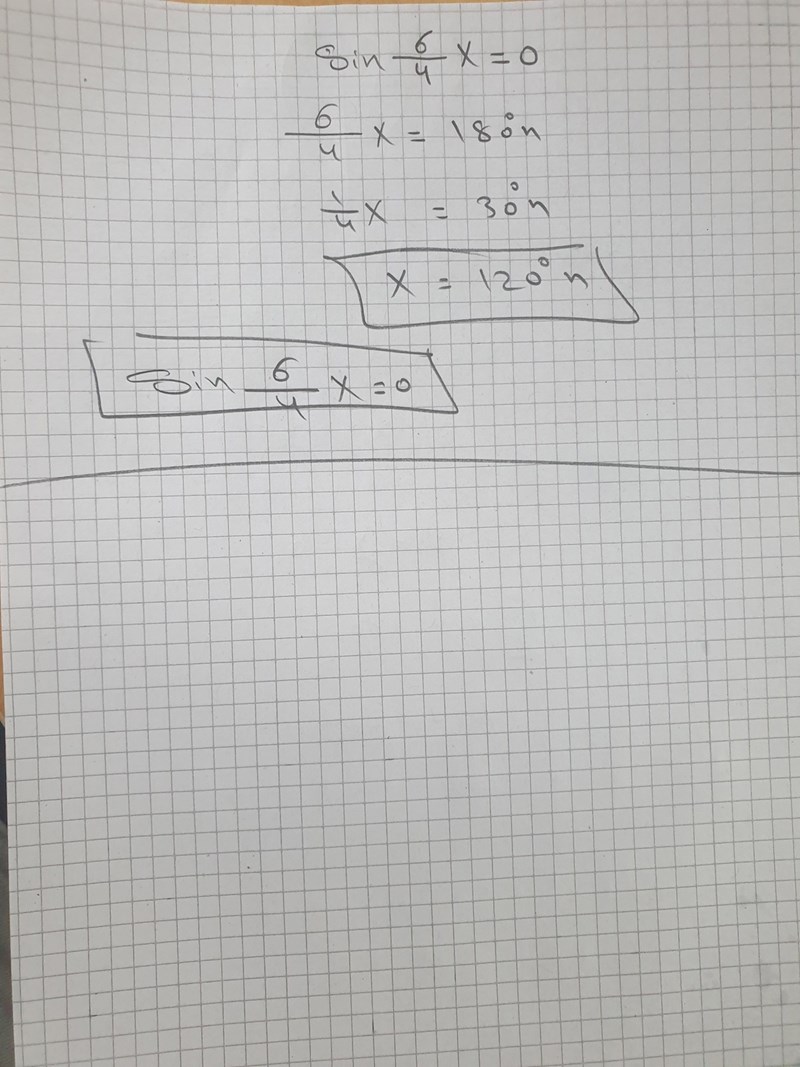 Sin 6/4 x = 0
6/4 x = 180° n
1/4 x = 30° n
x = 120° n
Sin 6/4 x = 0